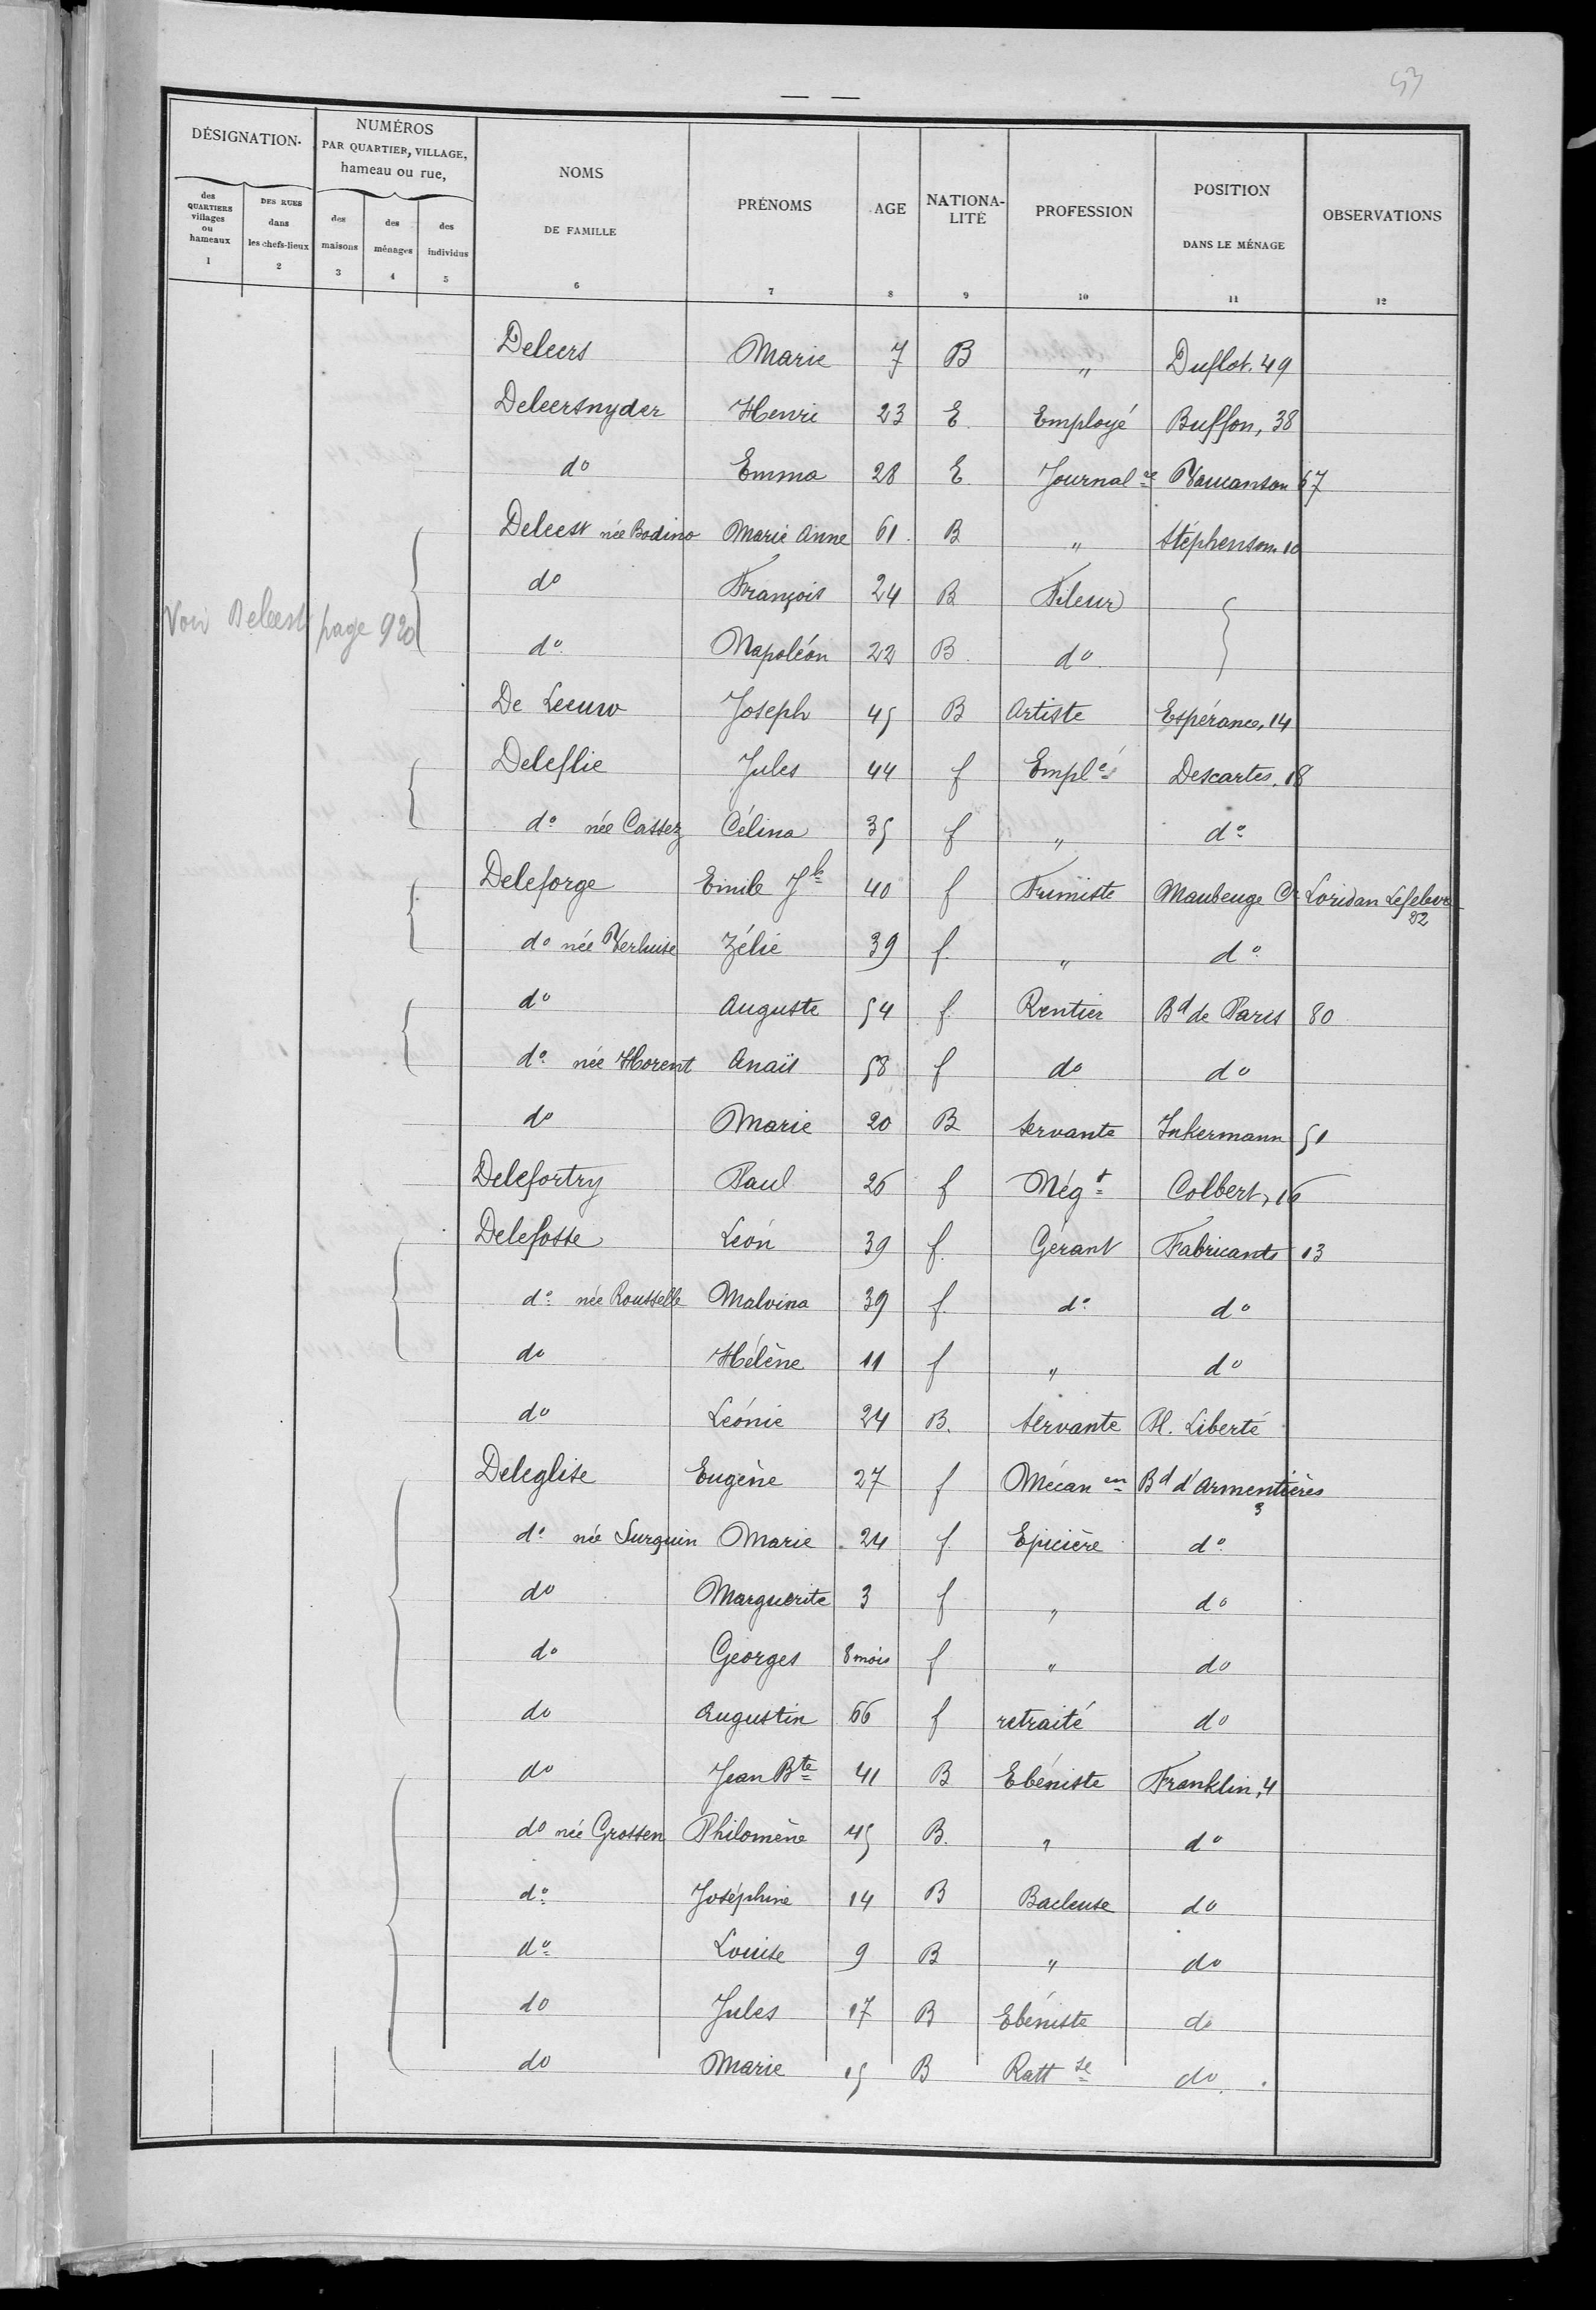 53
DÉSIGNATION
NUMÉROS
PAR QUARTIER, VILLAGE,
hameau ou rue,
des QUARTIERS villages ou hameaux
DES RUES dans les chefs-lieux
des maisons
des ménages
des individus
NOMS DE FAMILLE
PRÉNOMS
AGE
NATIONA-LITÉ
PROFESSION
POSITION DANS LE MÉNAGE
OBSERVATIONS
1 2 3 4 5 6 7 8 9 10 11 12
Deleers Marie 7 B " Duflot. 49
Deleersnyder Henri 23 E Employé Buffon, 38
do Emma 28 E Journal re Vaucanson 67
Deleest née Bodino Marie Anne 61 B " Stéphenson 10
do François 24 B Fileur
Voir Deleest page 920
do Napoléon 22 B do
De Leeuw Joseph 45 B Artiste Espérance, 14
Deleflie Jules 44 f Empl é Descartes, 18
do née Cassez Célina 35 f " do
Deleforge Emile Jh 40 f Fumiste Maubeuge Cr Loridan Lefebvre 22
do née Verluise Zélie 39 f " do
do Auguste 54 f Rentier Bd de Paris 80
do née Florent Anaïs 58 f do do
do Marie 20 B Servante Inkermann 51
Delefortry Paul 26 f Nég t Colbert, 16
Delefosse Léon 39 f Gérant Fabricants 13
do née Rousselle Malvina 39 f do do
do Hélène 11 f " do
do Léonie 24 B. Servante Pl. Liberté
Deleglise Eugène 27 f Mécan en Bd d'Armentières 3
do née Surquin Marie 24 f Epicière do
do Marguerite 3 f " do
do Georges 8 mois f " do
do Augustin 66 f retraité do
do Jean Bte 41 B Ebéniste Franklin, 4
do née Grossen Philomène 45 B. " do
do Joséphine 14 B Bacleuse do
do Louise 9 B " do
do Jules 17 B Ebéniste do
do Marie 15 B Ratt se do